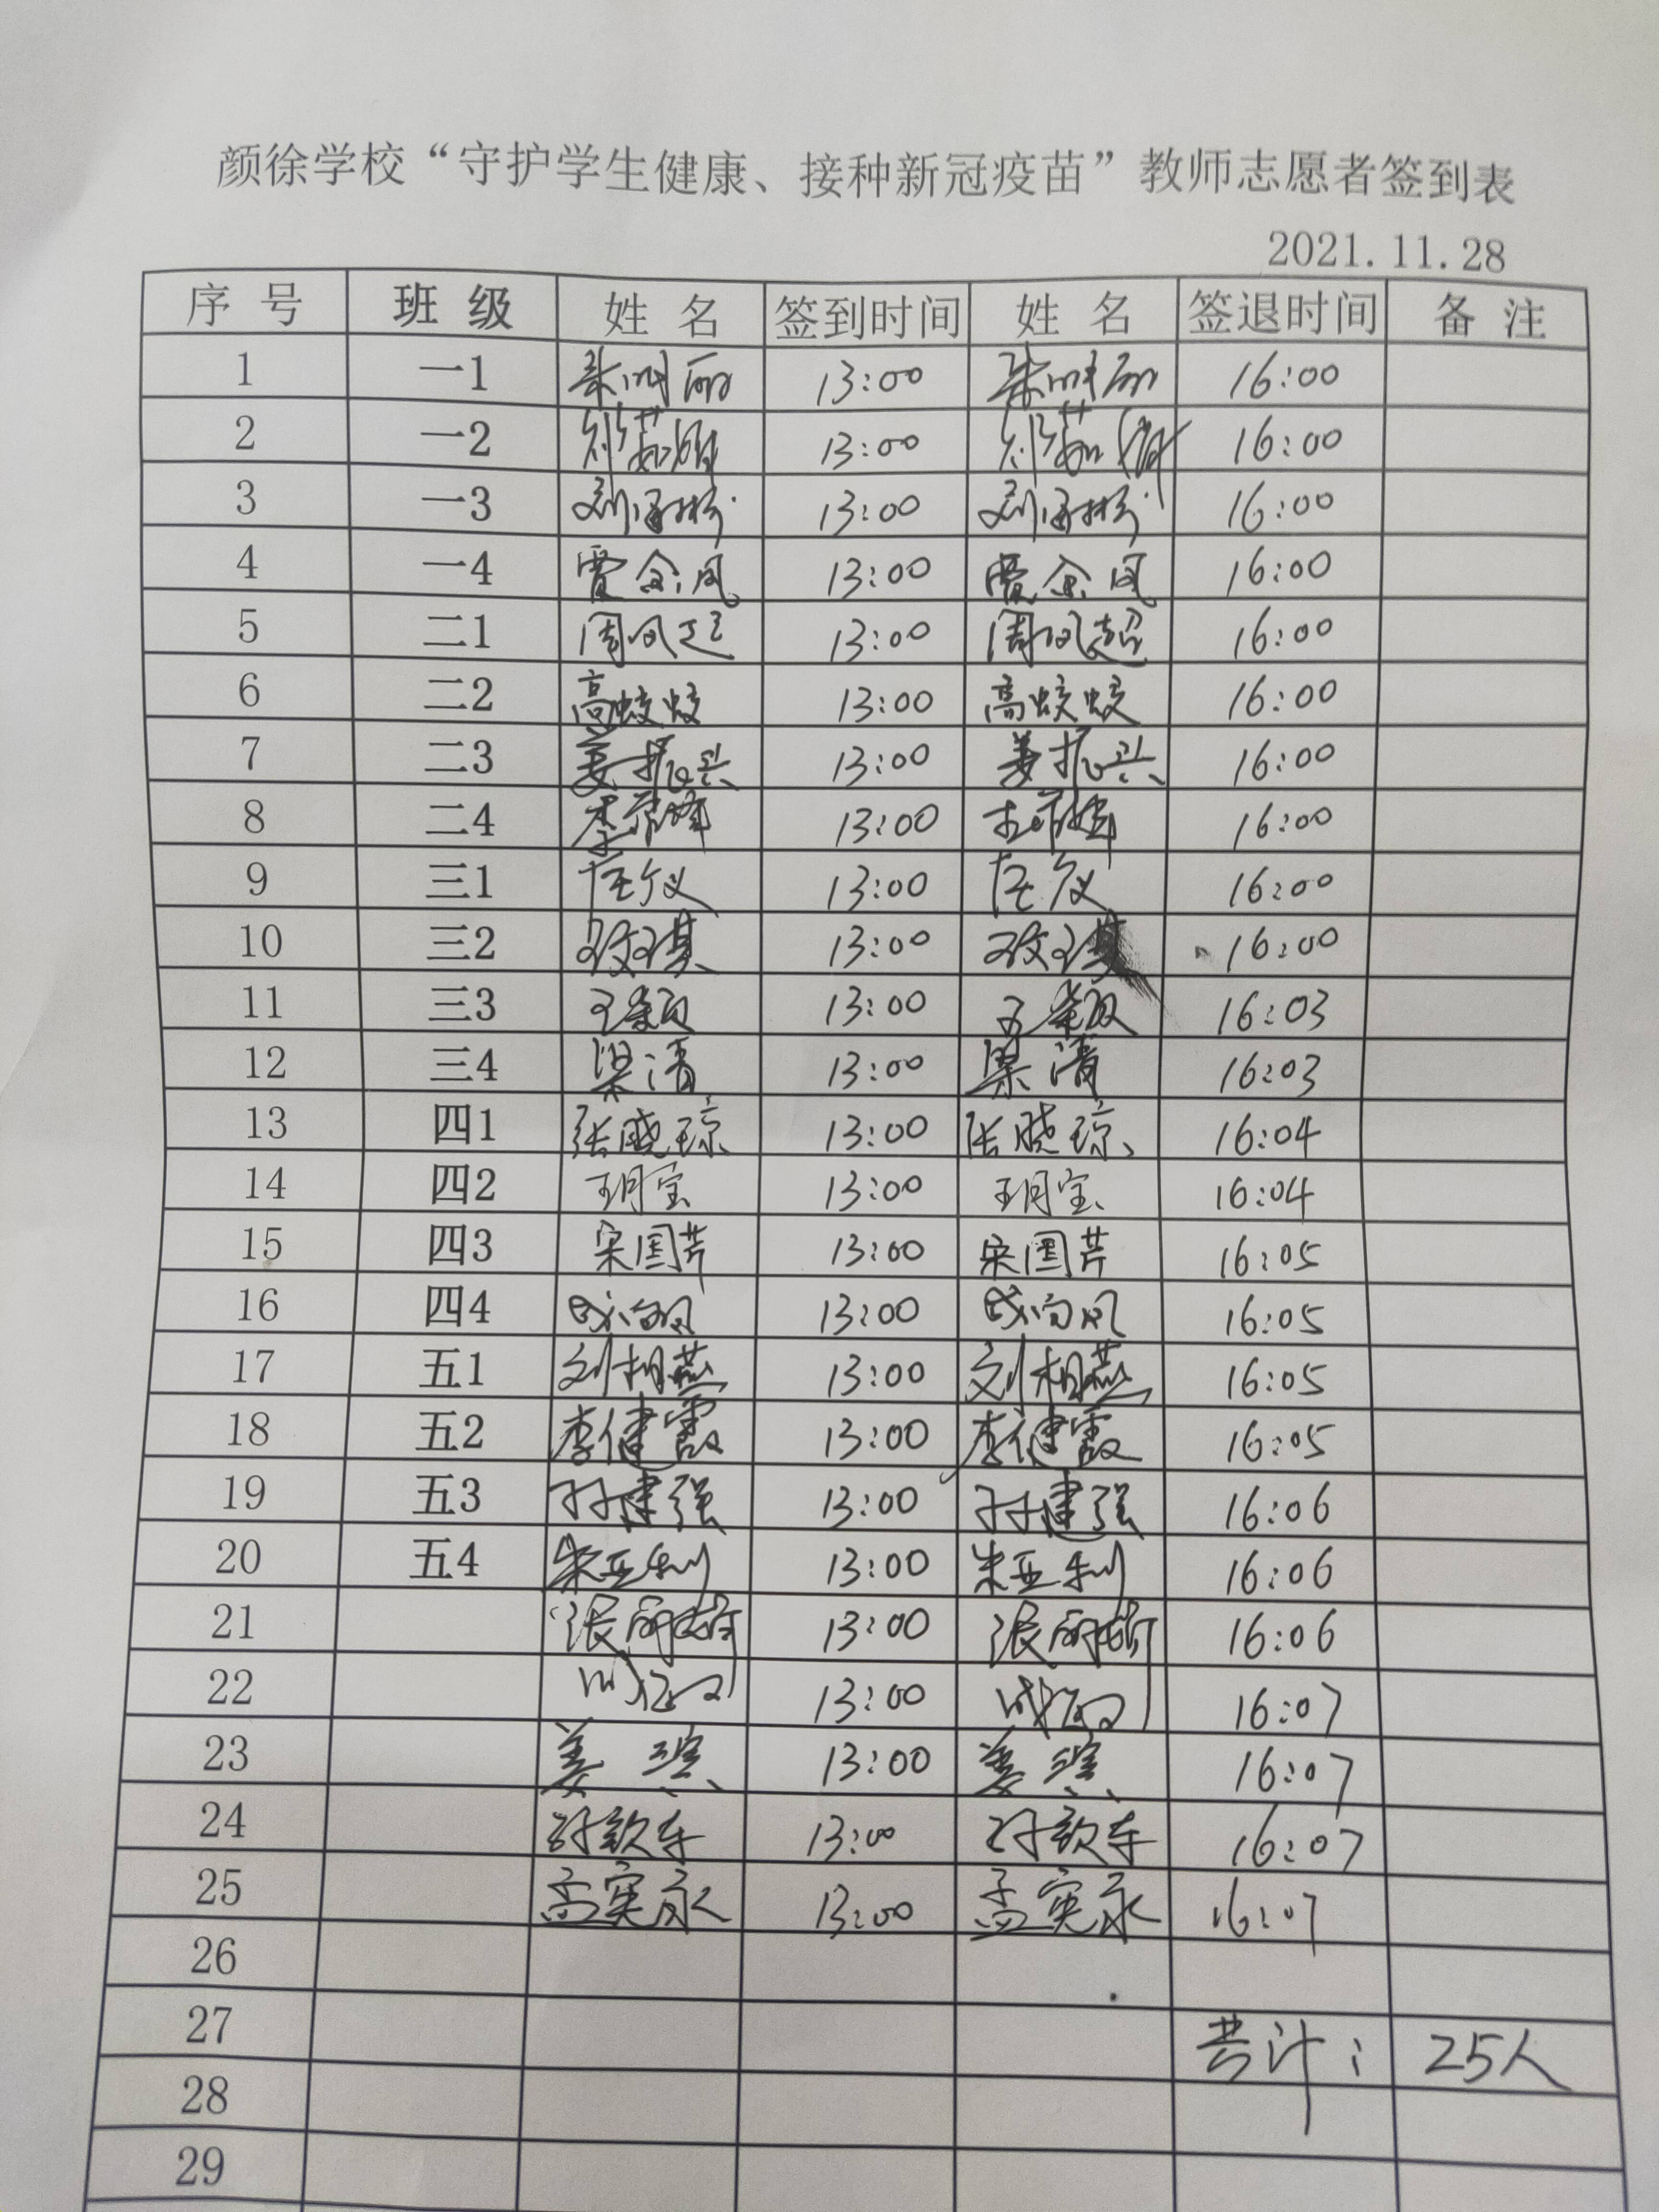 颜徐学校“守护学生健康、接种新冠疫苗”教师志愿者签到表
2021.11.28
序号 班级 姓名 签到时间 姓名 签退时间 备注
1 一1 13:00 16:00
2 一2 13:00 16:00
3 一3 13:00 16:00
4 一4 贾金凤 13:00 贾金凤 16:00
5 二1 周凤超 13:00 周凤超 16:00
6 二2 高蛟蛟 13:00 高蛟蛟 16:00
7 二3 姜振兴 13:00 姜振兴 16:00
8 二4 13:00 16:00
9 三1 13:00 16:00
10 三2 13:00 16:00
11 三3 王颖 13:00 王颖 16:03
12 三4 梁清 13:00 梁清 16:03
13 四1 张晓琼 13:00 张晓琼 16:04
14 四2 13:00 16:04
15 四3 宋国芹 13:00 宋国芹 16:05
16 四4 13:00 16:05
17 五1 刘相燕 13:00 刘相燕 16:05
18 五2 李健霞 13:00 李健霞 16:05
19 五3 孙建强 13:00 孙建强 16:06
20 五4 朱亚利 13:00 朱亚利 16:06
21 13:00 16:06
22 13:00 16:07
23 姜 13:00 姜 16:07
24 13:00 16:07
25 孟宪永 13:00 孟宪永 16:07
26
27 共计: 25人
28
29